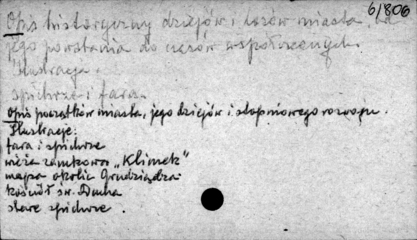 6/806
Opis historyczny dziejów i losów miasta od
jego powstania do czasów współczesnych.
Ilustracje:
spichrze i fara.
Opis początków miasta, jego dziejów i stopniowego rozwoju.
Ilustracje:
fara i spichrze
wieża zamkowa "Klimek"
mapa okolic Grudziądza
kościół św. Ducha
stare spichrze.